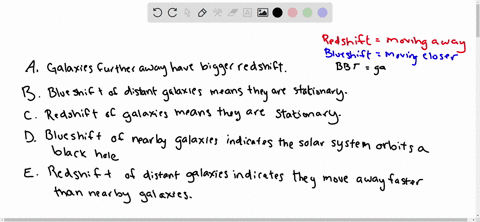 Redshift = moving away
Blueshift = moving closer
BBT = ga
A. Galaxies further away have bigger redshift.
B. Blueshift of distant galaxies means they are stationary.
C. Redshift of galaxies means they are stationary.
D. Blueshift of nearby galaxies indicates the solar system orbits a
black hole
E. Redshift of distant galaxies indicates they move away faster
than nearby galaxies.